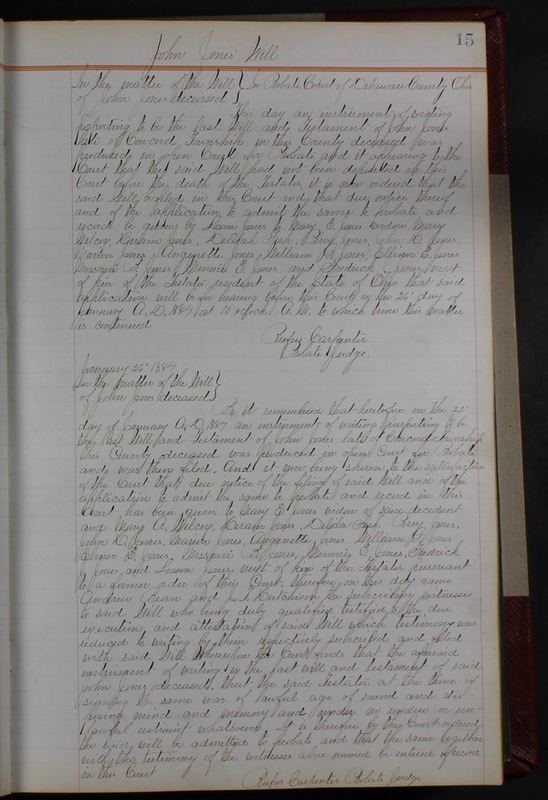 15
John Jones' Will
In the matter of the Will } In Probate Court of Delaware County Ohio
of John Jones deceased }
This day an instrument of writing
purporting to be the last Will and Testament of John Jones
late of Concord Township in this County deceased was
produced in open Court for Probate and it appearing to the
Court that the said Will had not been deposited in this
Court before the death of the testator it is now ordered that the
said Will be filed in this Court and that due notice thereof
and of the application to admit the same to probate and
record be given by Jones to Mary E. Jones widow, Mary
Wilcox, Hiram Jones, Delilah Jones, John D. Jones,
Jones, Angenette Jones, William Jones, Elmer E. Jones
Missouri Jones, Minnie E. Jones, and Fredrick Jones next
of kin of the Testator resident of the State of Ohio that said
application will be for hearing before this Court on the 26" day of
January A.D. 1887 at 10 o'clock A.M. to which time this matter
is continued
Rufus Carpenter
Probate Judge.
January 26" 1887
In the matter of the Will }
of John Jones deceased }
Be it remembered that heretofore on the 22"
day of January A.D. 1887 an instrument of writing purporting to be
the last Will and Testament of John Jones late of Concord Township
this County deceased was produced in open Court for Probate
and was then filed. And it now being shewn to the satisfaction
of the Court that due notice of the filing of said Will and of the
application to admit the same to probate and record in this
Court has been given to Mary E. Jones widow of said decedent
and Mary A. Wilcox, Hiram Jones, Jones,
John D. Jones, Jones, Angenette Jones, William Jones
Elmer E. Jones, Missouri Jones, Minnie E. Jones, Fredrick
Jones, and Jones next of kin of the Testator pursuant
to a former order of this Court. Therefore on this day came
Andrew Bean and Hutchison the subscribing witnesses
to said Will who being duly qualified testified to the due
execution and attestation of said Will which testimony was
reduced to writing by them respectively subscribed and filed
with said Will Whereupon the Court finds that the aforesaid
instrument of writing is the last will and testament of said
John Jones deceased, that the said Testator at the time of
signing the same was of lawful age of sound and dis-
posing mind and memory and under no undue or un-
lawful restraint whatsoever. It is therefore by the Court ordered
the said will be admitted to probate and that the same together
with the testimony of the witnesses above named be entered of record
in this Court
Rufus Carpenter Probate Judge